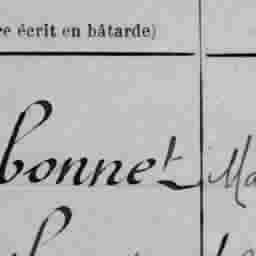 re écrit en bâtarde)
bonnet Ma